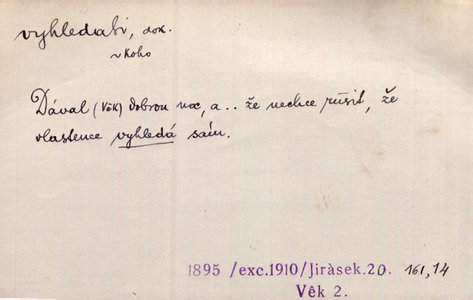 vyhledati, dok.
~ koho
Dával (Věk) dobrou noc, a .. že nechce rušit, že
vlastence vyhledá sám.
1895 /exc.1910/Jiràsek.20. 161,14
Vêk 2.